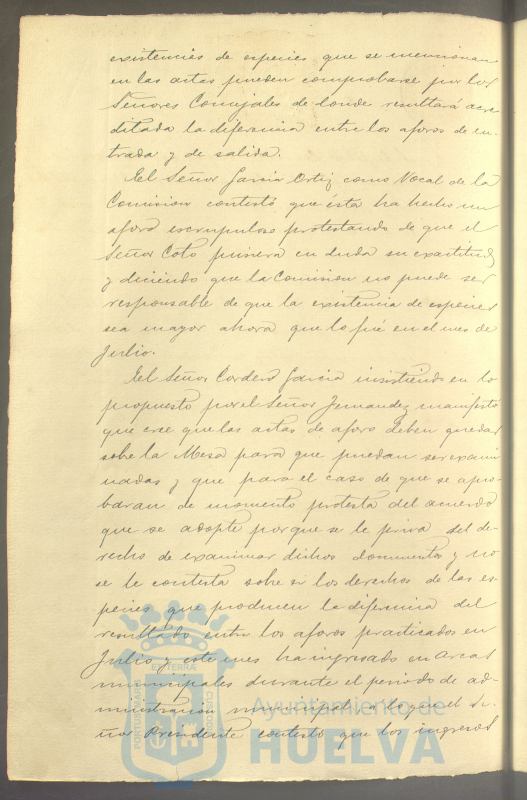 existencias de especies que se mencionan
en las actas pueden comprobarse por los
Señores Concejales de donde resultará acre
ditada la diferencia entre los aforos de en-
trada y de salida.
El Señor Garcia Ortiz como Vocal de la
Comision contestó que ésta ha hecho un
aforo escrupuloso protestando de que el
Señor Coto pusiera en duda su exactitud
y diciendo que la Comision no puede ser
responsable de que la existencia de especies
sea mayor ahora que lo fué en el mes de
Julio.
El Señor Cordero Garcia insistiendo en lo
propuesto por el Señor Fernandez manifestó
que cree que las actas de aforo deben quedar
sobre la Mesa para que puedan ser exami
nadas y que para el caso de que se apro-
baran de momento protesta del acuerdo
que se adopte porque se le priva del de-
recho de examinar dichos documentos y no
se le contesta sobre si los derechos de las es-
pecies que producen la diferencia del
resultado entre los aforos practicados en
Julio y este mes ha ingresado en arcas
municipales durante el periodo de ad-
ministracion municipal a lo que el Se-
ñor Presidente contestó que los ingresos
Ayuntamiento de
HUELVA